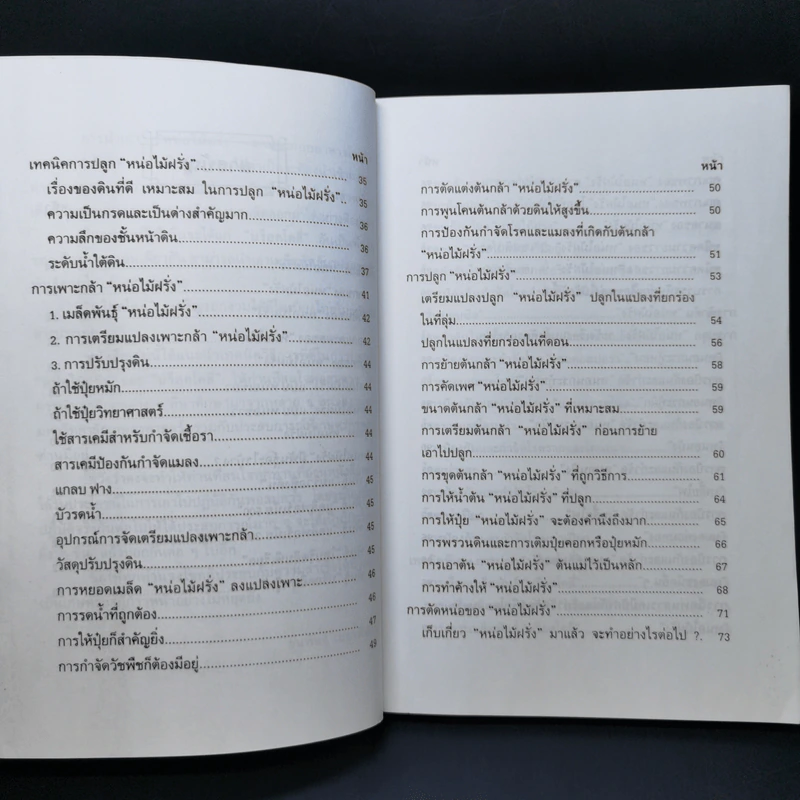 หน้า
เทคนิคการปลูก “หน่อไม้ฝรั่ง”.......... 35
เรื่องของดินที่ดี เหมาะสม ในการปลูก “หน่อไม้ฝรั่ง”.. 35
ความเป็นกรดและเป็นด่างสำคัญมาก.......... 36
ความลึกของชั้นหน้าดิน.......... 36
ระดับน้ำใต้ดิน.......... 37
การเพาะกล้า “หน่อไม้ฝรั่ง”.......... 41
1. เมล็ดพันธุ์ “หน่อไม้ฝรั่ง”.......... 42
2. การเตรียมแปลงเพาะกล้า “หน่อไม้ฝรั่ง”.......... 42
3. การปรับปรุงดิน.......... 44
ถ้าใช้ปุ๋ยหมัก.......... 44
ถ้าใช้ปุ๋ยวิทยาศาสตร์.......... 44
ใช้สารเคมีสำหรับกำจัดเชื้อรา.......... 44
สารเคมีป้องกันกำจัดแมลง.......... 44
แกลบ ฟาง.......... 45
บัวรดน้ำ.......... 45
อุปกรณ์การจัดเตรียมแปลงเพาะกล้า.......... 45
วัสดุปรับปรุงดิน.......... 45
การหยอดเมล็ด “หน่อไม้ฝรั่ง” ลงแปลงเพาะ.......... 46
การรดน้ำที่ถูกต้อง.......... 46
การให้ปุ๋ยก็สำคัญยิ่ง.......... 47
การกำจัดวัชพืชก็ต้องมีอยู่.......... 49
หน้า
การตัดแต่งต้นกล้า “หน่อไม้ฝรั่ง”.......... 50
การพูนโคนต้นกล้าด้วยดินให้สูงขึ้น.......... 50
การป้องกันกำจัดโรคและแมลงที่เกิดกับต้นกล้า
“หน่อไม้ฝรั่ง”.......... 51
การปลูก “หน่อไม้ฝรั่ง”.......... 53
เตรียมแปลงปลูก “หน่อไม้ฝรั่ง” ปลูกในแปลงที่ยกร่อง
ในที่ลุ่ม.......... 54
ปลูกในแปลงที่ยกร่องในที่ดอน.......... 56
การย้ายต้นกล้า “หน่อไม้ฝรั่ง”.......... 58
การคัดเพศ “หน่อไม้ฝรั่ง”.......... 59
ขนาดต้นกล้า “หน่อไม้ฝรั่ง” ที่เหมาะสม.......... 59
การเตรียมต้นกล้า “หน่อไม้ฝรั่ง” ก่อนการย้าย
เอาไปปลูก.......... 60
การขุดต้นกล้า “หน่อไม้ฝรั่ง” ที่ถูกวิธีการ.......... 61
การให้น้ำต้น “หน่อไม้ฝรั่ง” ที่ปลูก.......... 64
การให้ปุ๋ย “หน่อไม้ฝรั่ง” จะต้องคำนึงถึงมาก.......... 65
การพรวนดินและการเติมปุ๋ยคอกหรือปุ๋ยหมัก.......... 66
การเอาต้น “หน่อไม้ฝรั่ง” ต้นแม่ไว้เป็นหลัก.......... 67
การทำค้างให้ “หน่อไม้ฝรั่ง”.......... 68
การตัดหน่อของ “หน่อไม้ฝรั่ง”.......... 71
เก็บเกี่ยว “หน่อไม้ฝรั่ง” มาแล้ว จะทำอย่างไรต่อไป ?. 73